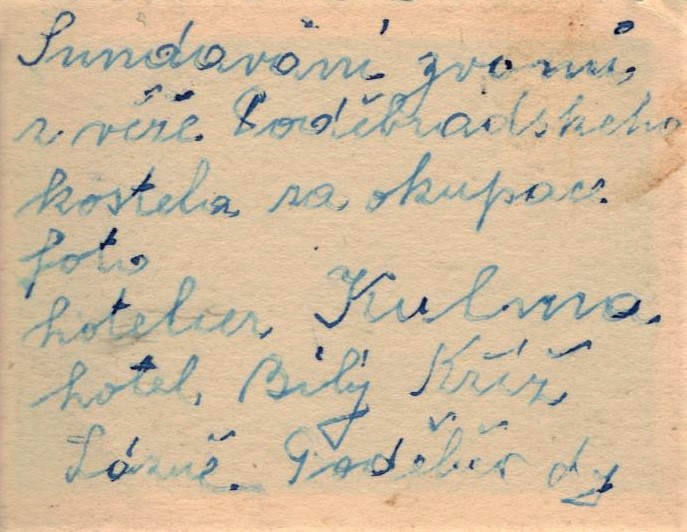 Sundavání zvonů
z věže Poděbradskeho
kostela za okupace
foto
hotelier Kulma
hotel Bílý Kříž
Lázně Poděbrady